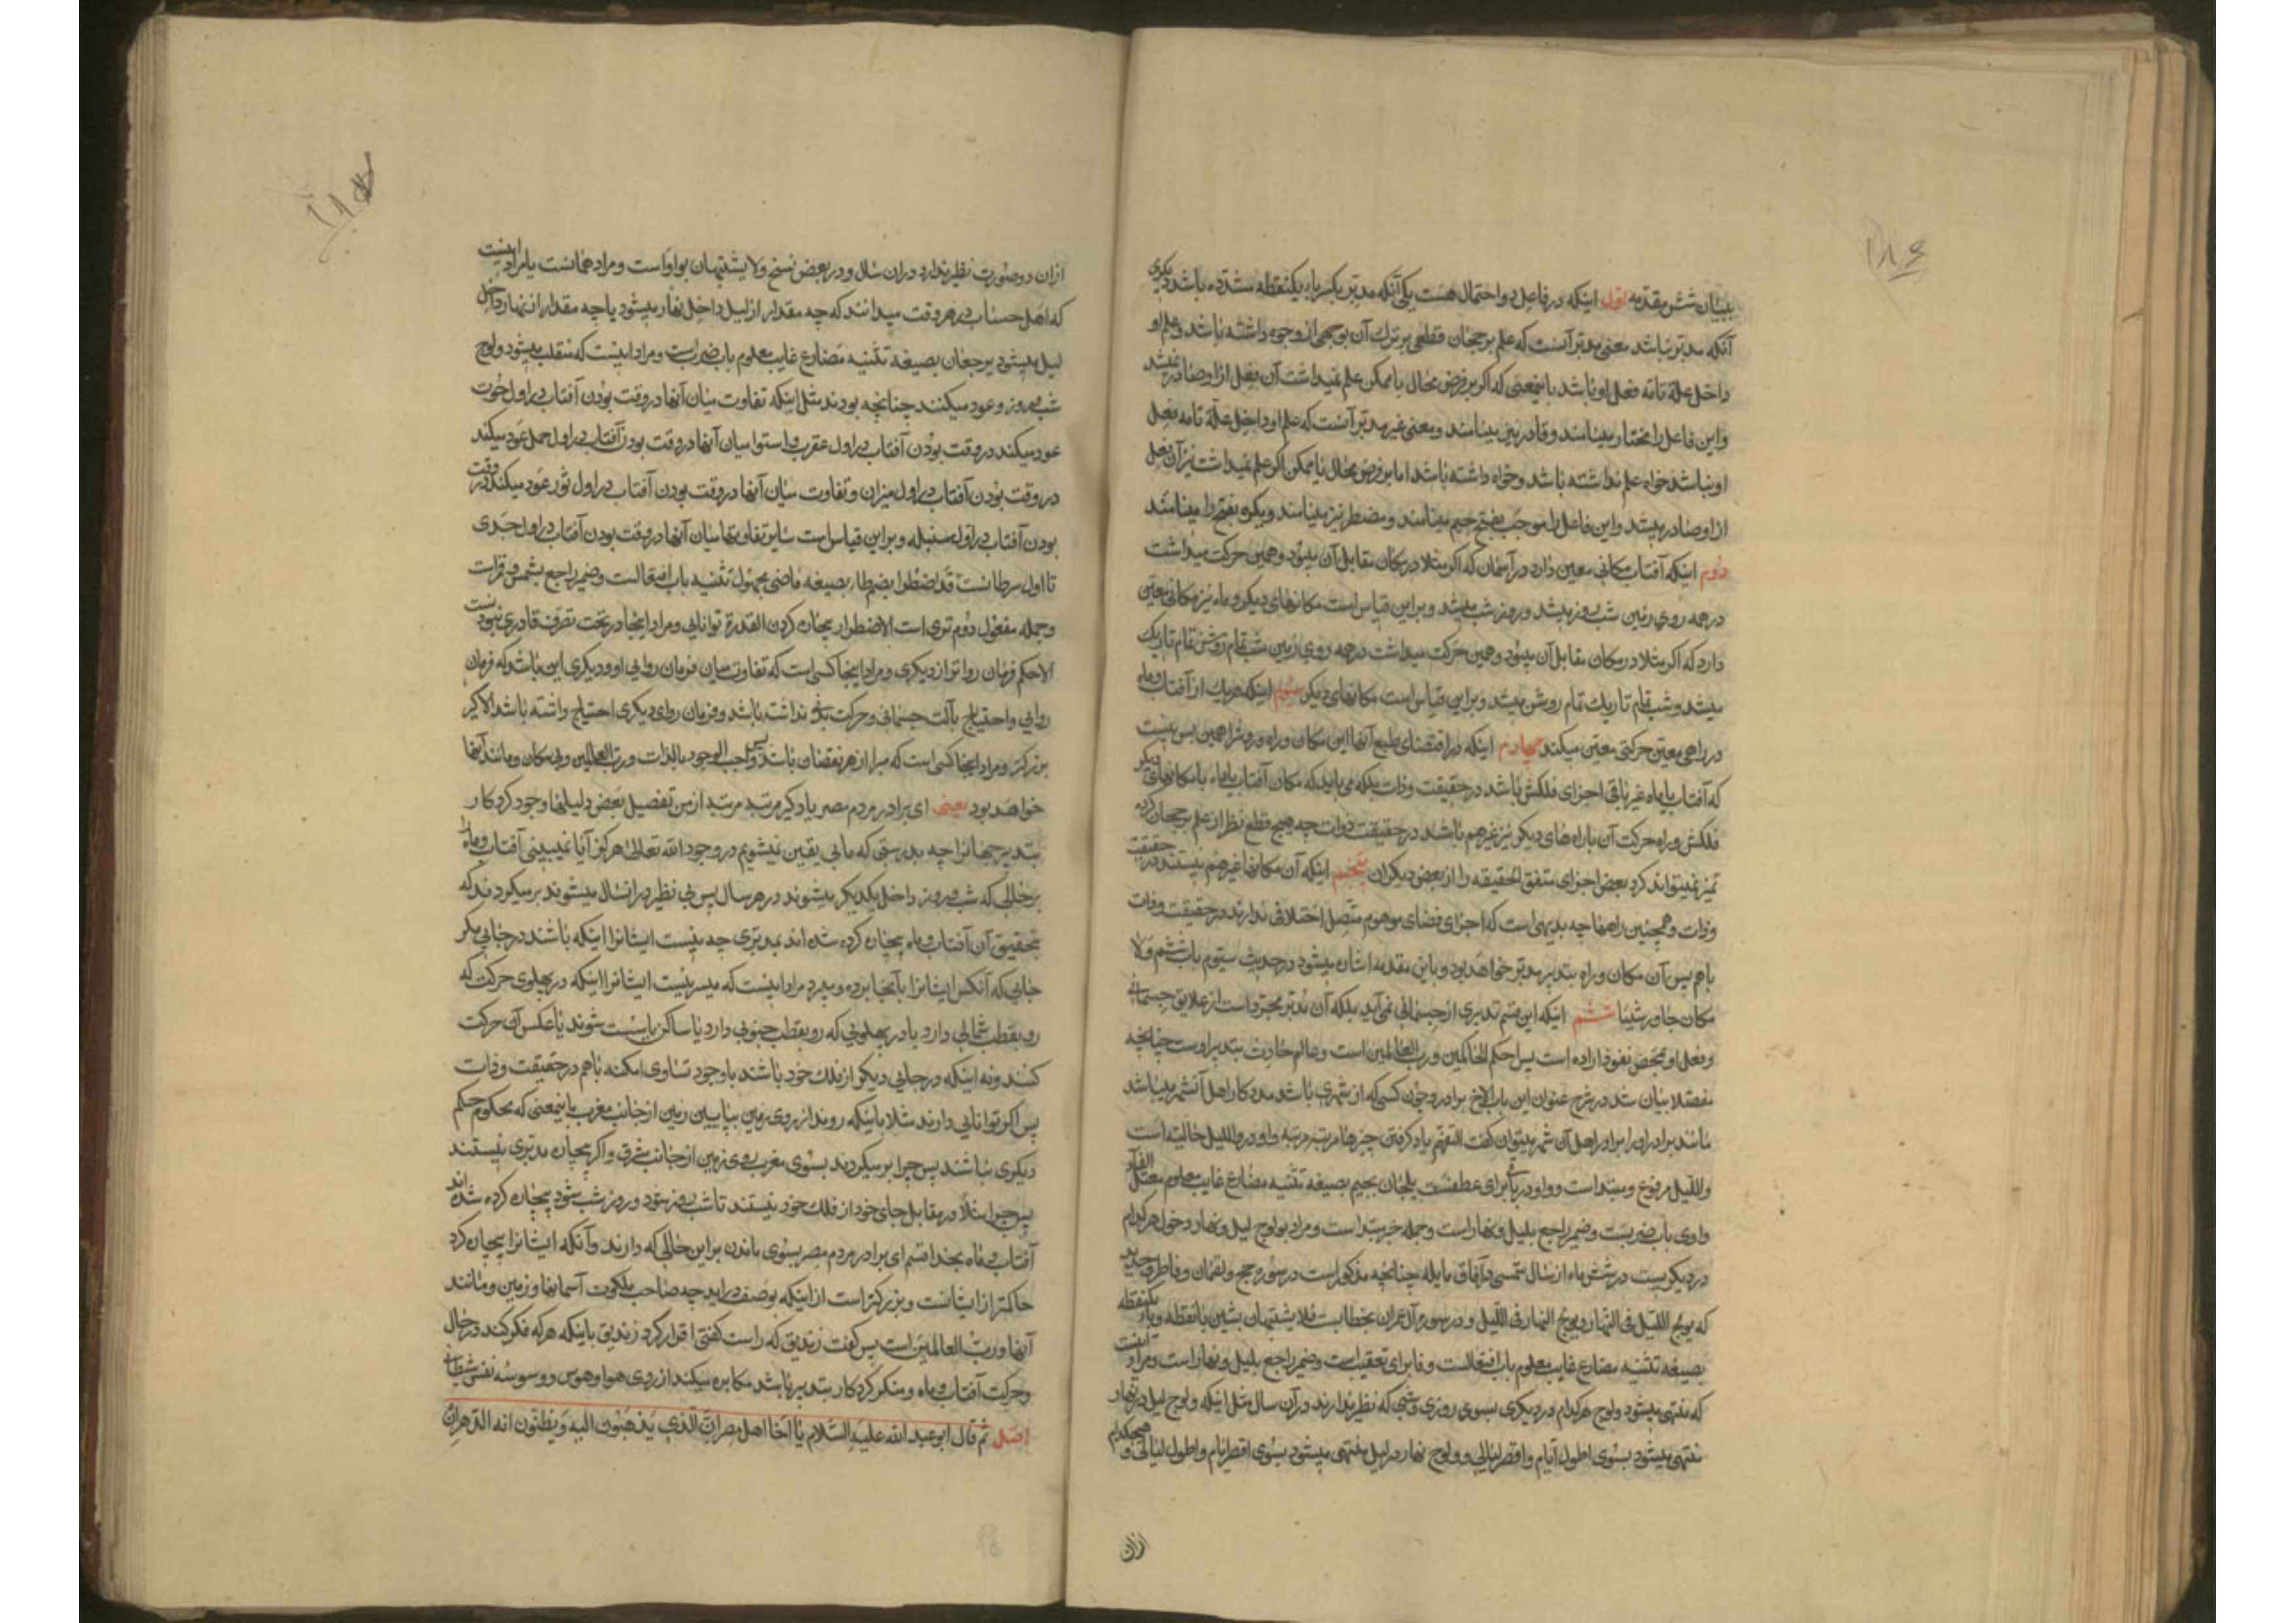 ۱۸۶
ببیان شش مقدمه اول اینکه در فاعل دو احتمال هست یکی آنکه مدبر بکسر باء یکنقطه مشدده باشد دیگری
آنکه مدبر نباشد معنی مدبر آنست که علم برجحان قطعی بر ترک آن بوجهی از وجوه داشته باشد و علم او
داخل علة تامه فعل او باشد باینمعنی که اکر بر فرض محال یا ممکن علم نمیداشت آن فعل از او صادر نمیشد
و این فاعل را مختار مینامند و قادر نیز مینامند و معنی غیر مدبر آنست که علم او داخل علة تامه فعل
او نباشد خواه علم نداشته باشد و خواه داشته باشد اما بر فرض محال یا ممکن اکر علم نمیداشت نیز آن فعل
از او صادر میشد و این فاعل را موجب بفتح جیم مینامند و مضطر نیز مینامند و بکره بفتح را مینامند
دوم اینکه آفتاب مکانی معین دارد در آسمان که اکر مثلا در مکان مقابل آن میبود و همین حرکت میداشت
در همه روی زمین شب روز میشد و روز شب میشد و براین قیاس است مکانهای دیکر و ماه نیز مکانی معین
دارد که اکر مثلا در مکان مقابل آن میبود و همین حرکت میداشت در همه روی زمین شب تمام روشن تمام تاریک
میشد و شب تمام تاریک تمام روشن میشد و براین قیاس است مکانهای دیکر سوم اینکه هر یک از آفتاب و ماه
در راهی معین حرکتی معین میکند چهارم اینکه در اقتضای طبع آنها این مکان و راه و روش را همین بس نیست
که آفتاب یا ماه غیر باقی اجزای فلکش باشد در حقیقت و ذات بلکه می باید که مکان آفتاب یا ماه با مکانهای دیکر
فلکش و راه حرکت آن با راه های دیکر نیز غیر هم باشند در حقیقت و ذات چه هیچ قطع نظر از علم برجحان کرده
تمیز نمیتواند کرد بعض اجزای متفق الحقیقه را از بعض دیکران پنجم اینکه آن مکانها غیر هم نیستند در حقیقت
و ذات و همچنین راهها چه بدیهی است که اجزای فضای موهوم متصل اختلافی ندارند در حقیقت و ذات
با هم پس آن مکان و راه بتدبیر مدبر خواهد بود و باین مقدمه اشاره میشود در حدیث سیوم باب ششم ولا
مکان جاور شیئا ششم اینکه این قسم تدبیری از جسمانی نمی آید بلکه آن مدبر مجرد است از علایق جسمانی
و فعل او بمحض نفوذ اراده است پس احکم الحاکمین و رب العالمین است و عالم حادث بتدبیر اوست چنانچه
مفصلا بیان شد در شرح عنوان این باب الاخ برادر و چون کسی که از شهری باشد مددکار اهل آنشهر میباشد
مانند برادر او را برادر اهل آن شهر میتوان کفت التفهم یاد کرفتن چیزها مرتبه مرتبه واو در واللیل حالیه است
واللیل مرفوع و مبتداست و واو در باقی برای عطفست یلجان بجیم بصیغه تثنیه مضارع غایب معلوم معتل الفاء
واوی باب ضرب است و ضمیر راجع بلیل و نهار است و جمله خبر مبتدا است و مراد بولوج لیل و نهار دخول هر کدام
در دیکریست در شش ماه از سال شمسی در آفاق مایله چنانچه مذکور است در سوره حج و لقمان و فاطر و حدید
که یولج اللیل فی النهار و یولج النهار فی اللیل و در سوره آل عمران بخطابست فلا یشتبهان بشین بانقطه و باء یکنقطه
بصیغه تثنیه مضارع غایب معلوم باب افتعالست و فا برای تعقیبست و ضمیر راجع بلیل و نهار است و مراد اینست
که منتهی میشود ولوج هر کدام در دیکری بسوی روزی و شبی که نظیر ندارند در آن سال مثل اینکه ولوج لیل در نهار
منتهی میشود بسوی اطول ایام و اقصر لیالی و ولوج نهار در لیل منتهی میشود بسوی اقصر ایام و اطول لیالی و هیچکدام
ازان
۱۸۵
ازان دو صورت نظیر ندارد دران سال و در بعض نسخ ولا یشتبهان بواو است و مراد همانست یا مراد اینست
که اهل حساب در هر وقت میدانند که چه مقدار از لیل داخل نهار میشود یا چه مقدار از نهار داخل
لیل میشود یرجعان بصیغه تثنیه مضارع غایب معلوم باب ضرب است و مراد اینست که منقلب میشود ولوج
شب و روز و عود میکنند چنانچه بودند مثل اینکه تفاوت میان آنها در وقت بودن آفتاب در اول حوت
عود میکند در وقت بودن آفتاب در اول عقرب و استوا میان آنها در وقت بودن آفتاب در اول حمل عود میکند
در وقت بودن آفتاب در اول میزان و تفاوت میان آنها در وقت بودن آفتاب در اول ثور عود میکند در وقت
بودن آفتاب در اول سنبله و براین قیاس است سایر تفاوتها میان آنها در وقت بودن آفتاب در اول جدی
تا اول سرطانست قد اضطرا بضم طاء بصیغه ماضی مجهول تثنیه باب افتعالست و ضمیر راجع بشمس و قمر است
و جمله مفعول دوم تری است الاضطرار بیچاره کردن القدرة توانایی و مراد اینجا در تحت تصرف قادری نبودنست
الاحکم فرمان روا تر از دیکری و مراد اینجا کسی است که تفاوت میان فرمان روایی او و دیکری این باشد که فرمان
روایی واحتیاج بآلت جسمانی و حرکت بدنی نداشته باشد و فرمان روای دیکری احتیاج داشته باشد الاکبر
بزرکتر و مراد اینجا کسی است که مبرا از هر نقصان باشد پس واجب الوجود بالذات و رب العالمین و بی مکان و مانند آنها
خواهد بود یعنی ای برادر مردم مصر یاد کیر مرتبه مرتبه از من تفصیل بعض دلیلها وجود کردکار
بتدبیر جهانرا چه بدرستی که ما بی یقین نمیشویم در وجود الله تعالی هرکز آیا نمیبینی آفتاب و ماه را
برحالی که شب و روز داخل یکدیکر میشوند در هر سال پس بی نظیر در انسال میشوند برمیکردند که
بتحقیق آن آفتاب و ماه بیچاره کرده شده اند بمدبری چه نیست ایشانرا اینکه باشند در جایی مکر
جایی که آنکس ایشانرا بآنجا برده و میبرد مراد اینست که میسر نیست ایشانرا اینکه در پهلوی حرکت که
رو بقطب شمالی دارد یا در پهلویی که رو بقطب جنوبی دارد یا ساکن یا سست شوند یا عکس آن حرکت
کنند و نه اینکه در جایی دیکر از فلک خود باشند باوجود تساوی امکنه باهم در حقیقت و ذات
پس اکر توانایی دارند مثلا باینکه روند از روی زمین بپایین زمین از جانب مغرب باینمعنی که محکوم حکم
دیکری نباشند پس چرا برمیکردند بسوی مغرب روی زمین از جانب مشرق و اکر بیچاره مدبری نیستند
پس چرا مثلا در مقابل جای خود از فلک خود نیستند تا شب روز شود و روز شب شود بیچاره کرده شده اند
آفتاب و ماه بخدا قسم ای برادر مردم مصر بسوی ماندن براین حالی که دارند و آنکه ایشانرا بیچاره کرد
حاکمتر از ایشانست و بزرکتر است از اینکه بوصف دراید چه صاحب ملکوت آسمانها و زمین و مانند
آنها و رب العالمین است پس کفت زندیق که راست کفتی اقرار کرد زندیق باینکه هرکه فکر کند در حال
و حرکت آفتاب و ماه و منکر کردکار بتدبیر باشد مکابره میکند از روی هوا و هوس و وسوسه نفس شیطانی
اصل ثم قال ابو عبد الله علیه السلام یا اخا اهل مصر ان الذی یذهبون الیه و یظنون انه الدهر ان